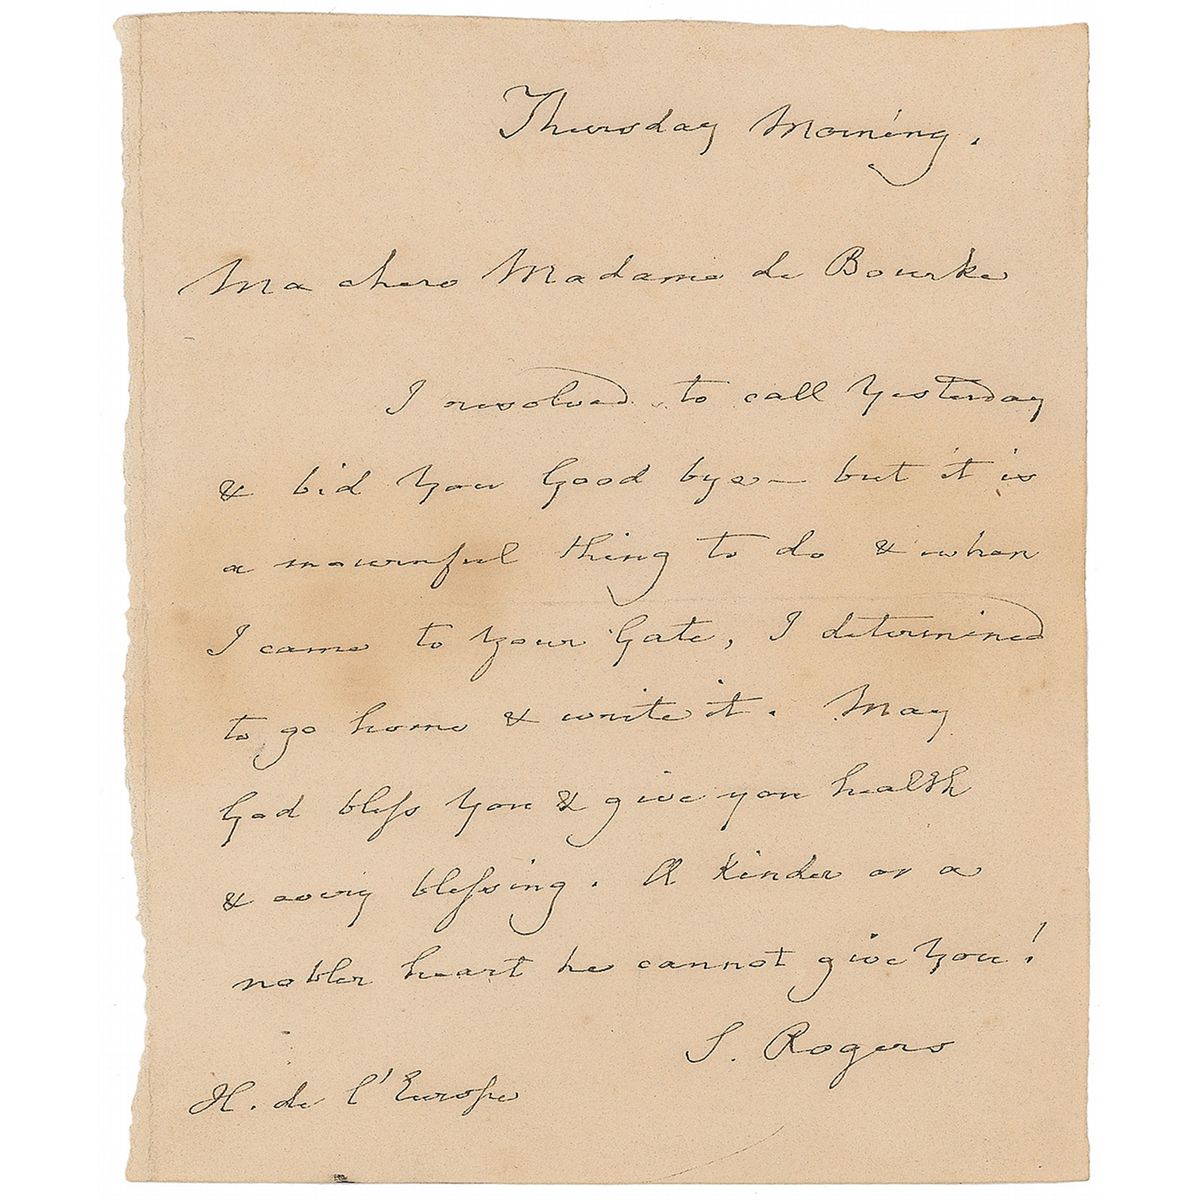 Thursday Morning.
Ma chere Madame de Bourke
I resolved to call Yesterday
& bid You Good bye — but it is
a mournful thing to do & when
I came to Your Gate, I determined
to go home & write it. May
God bless You & give you health
& every blessing. A kinder or a
nobler heart he cannot give You!
S. Rogers
H. de l'Europe